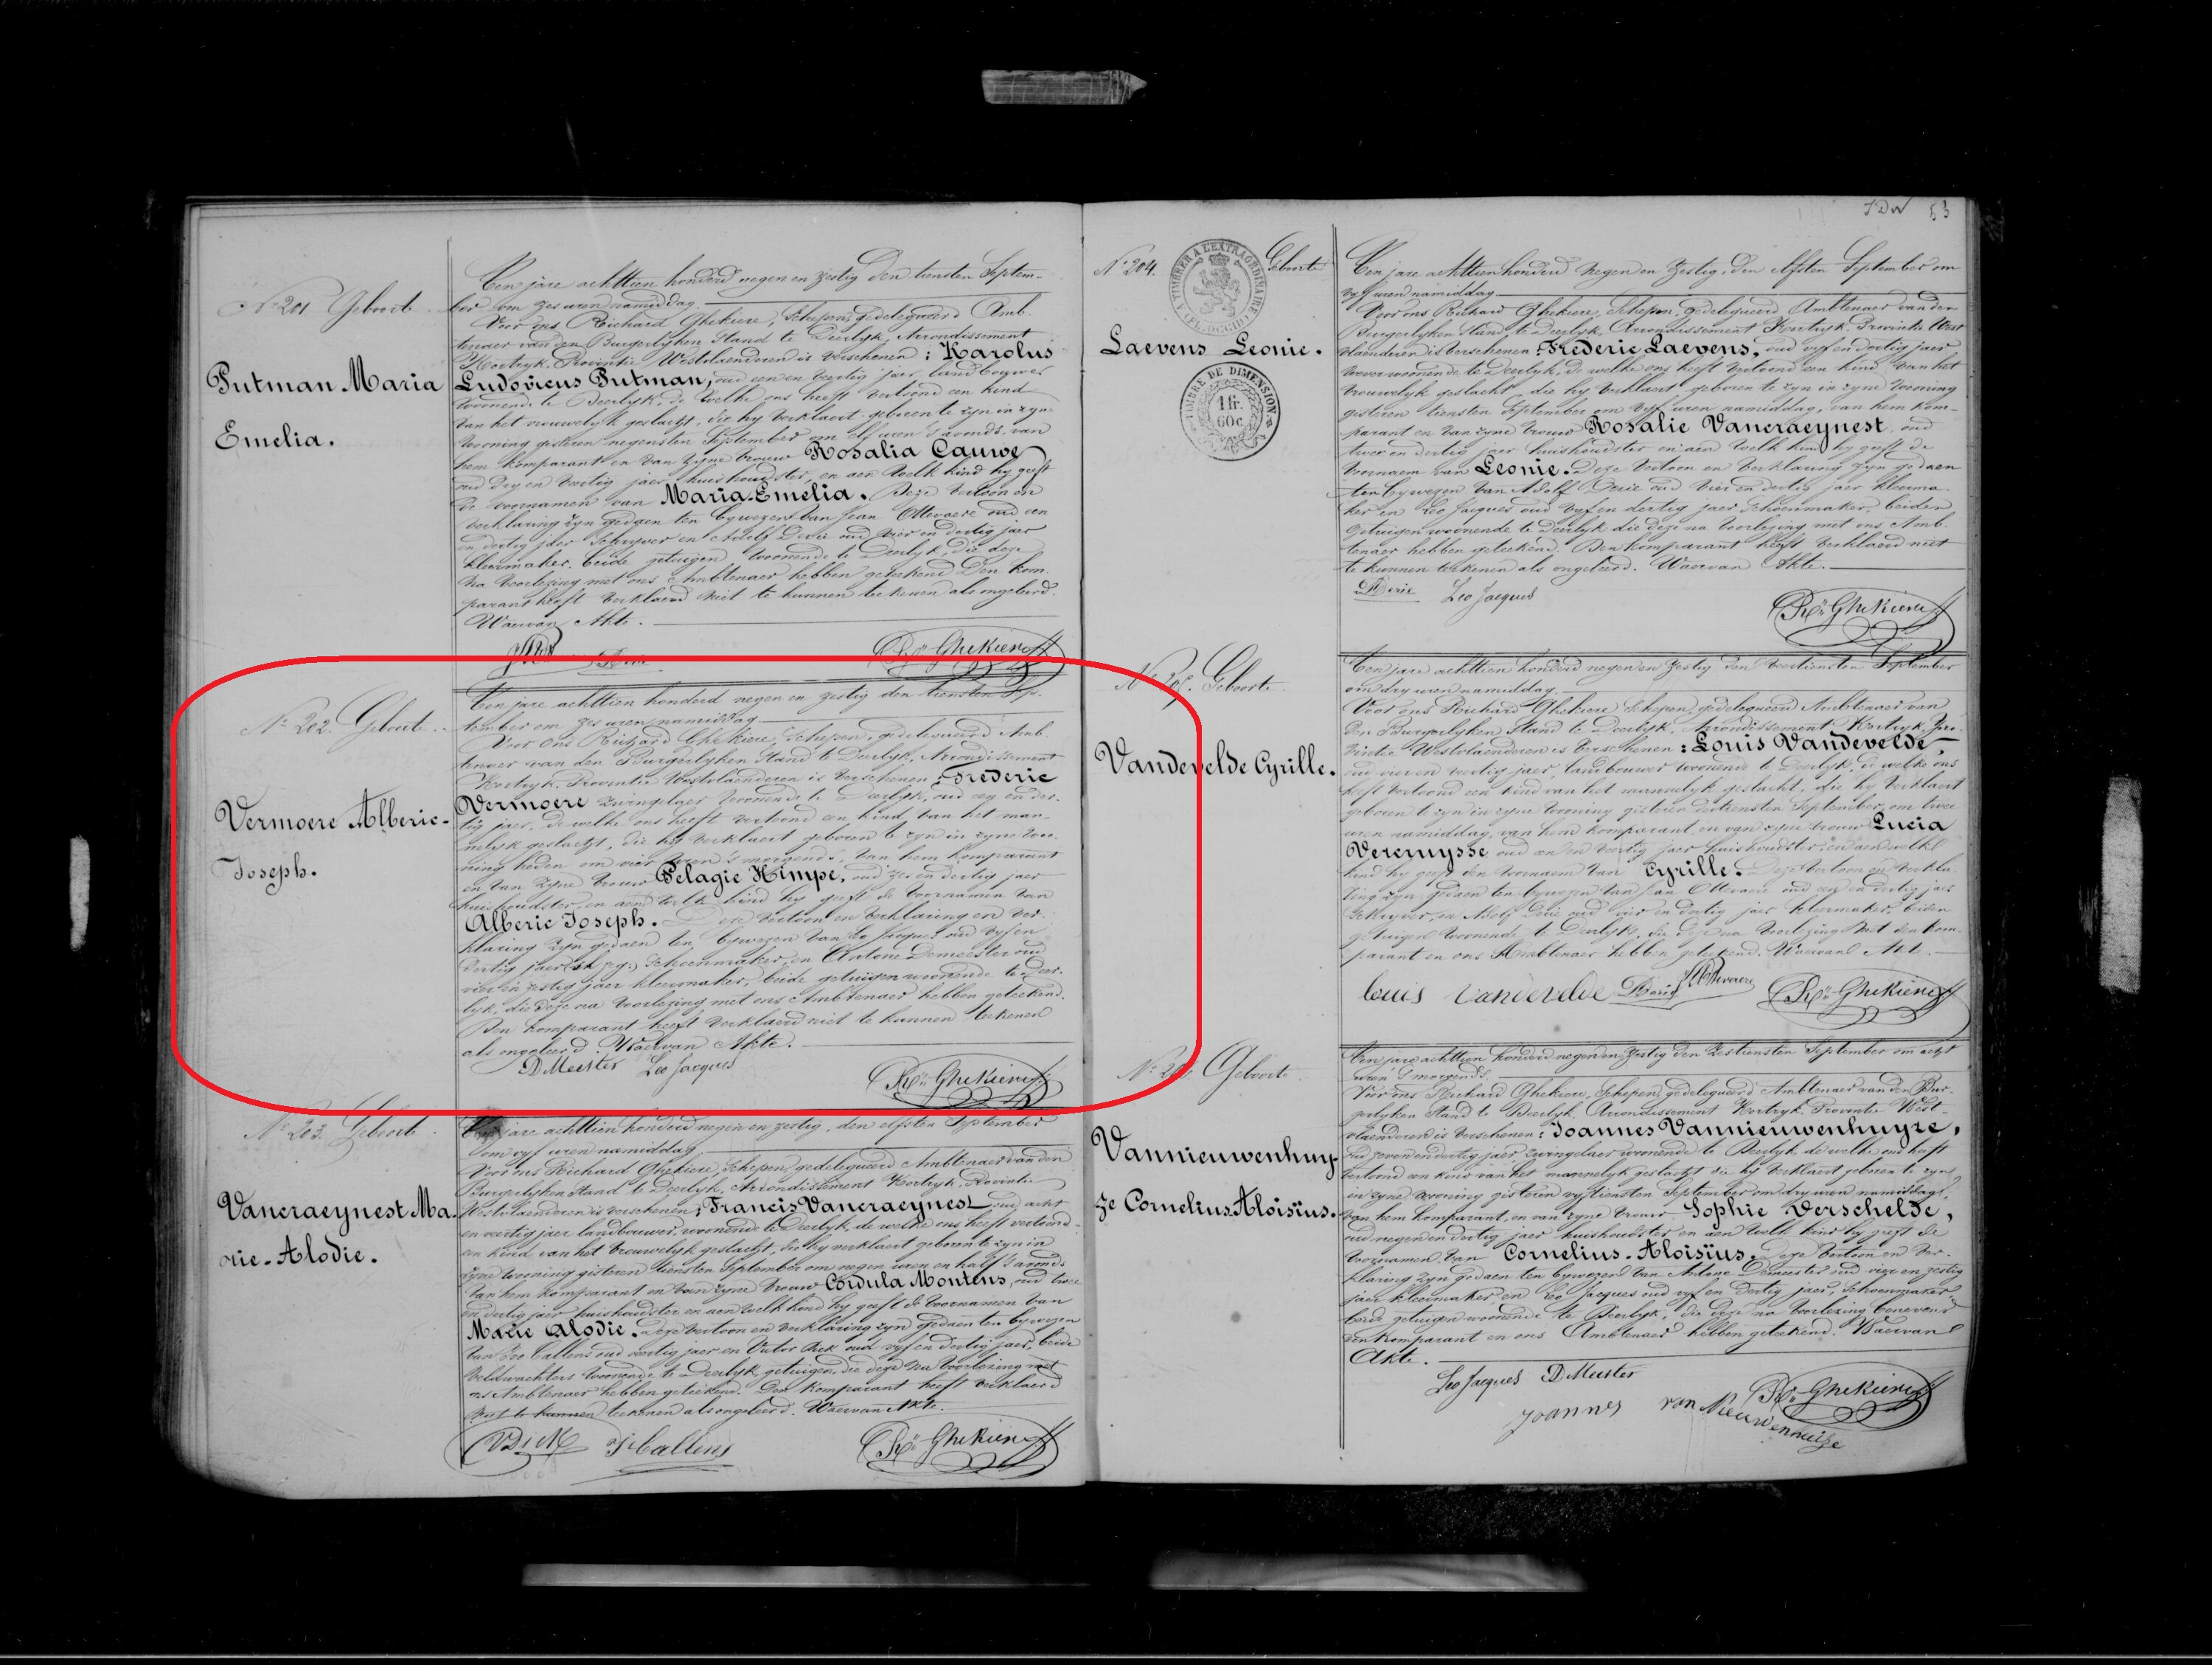 N° 201 Geboorte.
Putman Maria
Emelia.
Ten jare achttien honderd negen en zestig den tiensten Septem-
ber om zes uren namiddag.
Voor ons Richard Ghekiere, Schepen, gedelegueerd Amb-
tenaer van den Burgerlyken Stand te Deerlyk, Arrondissement
Kortryk, Provintie Westvlaenderen is verschenen : Karolus
Ludovicus Putman, oud een en veertig jaer, landbouwer
woonende te Deerlyk, de welke ons heeft vertoond een kind
van het vrouwelyk geslacht, die hy verklaert geboren te zyn in zyne
wooning gisteren negensten September om elf uren 's avonds, van
hem komparant en van zyne vrouw Rosalia Cauwe
oud dry en veertig jaer, huishoudster, en aen welk kind hy geeft
de voornamen van Maria-Emelia. Deze vertoon en
verklaring zyn gedaen ten bywezen van Jean Ottevaere oud een
en dertig jaer Schryver en Adolf Derie oud vier en dertig jaer
kleermaker, beide getuigen woonende te Deerlyk, die deze
na voorlezing met ons Ambtenaer hebben geteekend. Den kom-
parant heeft verklaerd niet te kunnen teekenen als ongeleerd.
Waervan Akte.
Derie Rd Ghekiere
N° 202. Geboorte.
Vermoere Alberic-
Joseph.
Ten jare achttien honderd negen en zestig den tiensten Sep-
tember om zes uren namiddag
Voor Ons Richard Ghekiere, Schepen, gedelegueerd Amb-
tenaer van den Burgerlyken Stand te Deerlyk, Arrondissement
Kortryk, Provintie Westvlaenderen is verschenen : Frederic
Vermoere zwingelaer woonende te Deerlyk, oud een en der-
tig jaer, de welke ons heeft vertoond een kind van het man-
nelyk geslacht, die hy verklaert geboren te zyn in zyne woo-
ning heden om vier uren 's morgends, van hem komparant
en van zyne vrouw Pelagie Himpe, oud zes en dertig jaer
huishoudster, en aen welk kind hy geeft de voornamen van
Alberic Joseph. Deze vertoon en verklaring en ver-
klaring zyn gedaen ten bywezen van Leo Jacques oud vyf en
dertig jaer Schoenmaker, en Antone Demeester oud
vier en zestig jaer kleermaker, beide getuigen woonende te Deer-
lyk, die deze na voorlezing met ons Ambtenaer hebben geteekend.
Den komparant heeft verklaerd niet te kunnen teekenen
als ongeleerd. Waervan Akte.
DMeester Leo Jacques Rd Ghekiere
N° 203. Geboorte.
Vancraeynest Ma-
rie-Alodie.
Ten jare achttien honderd negen en zestig, den elfsten September
om vyf uren namiddag
Voor ons Richard Ghekiere, Schepen, gedelegueerd Ambtenaer van den
Burgerlyken Stand te Deerlyk, Arrondissement Kortryk, Provintie
Westvlaenderen is verschenen : Francis Vancraeynest oud acht
en veertig jaer landbouwer, woonende te Deerlyk, de welke ons heeft vertoond
een kind van het vrouwelyk geslacht, die hy verklaert geboren te zyn in
zyne wooning gisteren tiensten September om negen uren en half 's avonds
van hem komparant en van zyne vrouw Cordula Moutens, oud twee
en dertig jaer huishoudster en aen welk kind hy geeft de voornamen van
Marie Alodie. Deze vertoon en verklaring zyn gedaen ten bywezen
van Ivo Callens oud veertig jaer en Victor Dick oud vyf en dertig jaer, beide
veldwachters woonende te Deerlyk, getuigen, die deze na voorlezing met
ons Ambtenaer hebben geteekend. Den komparant heeft verklaerd
niet te kunnen teekenen als ongeleerd. Waervan Akte.
VDick Callens Rd Ghekiere
53
N° 204. Geboorte
TIMBRE A L'EXTRAORDINAIRE
(FL. OCCID.)
Laevens Leonie.
TIMBRE DE DIMENSION
1 fr.
60 c.
Ten jare achttien honderd negen en zestig, den elfsten September om
vyf uren namiddag
Voor ons Richard Ghekiere, Schepen, gedelegueerd Ambtenaer van den
Burgerlyken Stand te Deerlyk, Arrondissement Kortryk, Provintie West
vlaenderen is verschenen : Frederic Laevens, oud vyf en dertig jaer
wever woonende te Deerlyk, de welke ons heeft vertoond een kind van het
vrouwelyk geslacht, die hy verklaert geboren te zyn in zyne wooning
gisteren tiensten September om vyf uren namiddag, van hem kom-
parant en van zyne vrouw Rosalie Vancraeynest oud
twee en dertig jaer huishoudster en aen welk kind hy geeft de
voornaem van Leonie. Deze vertoon en verklaring zyn gedaen
ten bywezen van Adolf Derie oud vier en dertig jaer kleerma-
ker en Leo Jacques oud vyf en dertig jaer Schoenmaker, beiden
getuigen woonende te Deerlyk die deze na voorlezing met ons Amb-
tenaer hebben geteekend. Den komparant heeft verklaerd niet
te kunnen teekenen als ongeleerd. Waervan Akte.
Derie Leo Jacques Rd Ghekiere
N° 205. Geboorte
Vandevelde Cyrille.
Ten jare achttien honderd negen en zestig den veertiensten September
om dry uren namiddag.
Voor ons Richard Ghekiere Schepen, gedelegueerd Ambtenaer van
den Burgerlyken Stand te Deerlyk, Arrondissement Kortryk, Pro-
vintie Westvlaenderen is verschenen : Louis Vandevelde,
oud vier en veertig jaer, landbouwer woonende te Deerlyk, de welke ons
heeft vertoond een kind van het mannelyk geslacht, die hy verklaert
geboren te zyn in zyne wooning gisteren dertiensten September, om twee
uren namiddag, van hem komparant, en van zyne vrouw Lucia
Vercruysse oud een en veertig jaer huishoudster, en aen welk
kind hy geeft den voornaem van Cyrille. Deze vertoon en verkla-
ring zyn gedaen ten bywezen van Jean Ottevaere oud een en dertig jaer
Schryver, en Adolf Derie oud vier en dertig jaer kleermaker, beiden
getuigen woonende te Deerlyk, die deze na voorlezing met den kom-
parant en ons Ambtenaer hebben geteekend. Waervan Akte.
Louis Vandevelde Derie JOttevaere Rd Ghekiere
N° 206. Geboorte
Vannieuwenhuy-
ze Cornelius Aloisïus.
Ten jare achttien honderd negen en zestig den zestiensten September om acht
uren 's morgends.
Voor ons Richard Ghekiere, Schepen, gedelegueerd Ambtenaer van den Bur-
gerlyken Stand te Deerlyk, Arrondissement Kortryk, Provintie West-
vlaenderen is verschenen : Joannes Vannieuwenhuyze,
oud zeven en dertig jaer, zwingelaer woonende te Deerlyk de welke ons heeft
vertoond een kind van het mannelyk geslacht die hy verklaert geboren te zyn
in zyne wooning gisteren vyftiensten September om dry uren namiddag,
van hem komparant, en van zyne vrouw Sophie Verschelde,
oud negen en dertig jaer huishoudster, en aen welk kind hy geeft de
voornamen van Cornelius-Aloisïus. Deze vertoon en ver-
klaring zyn gedaen ten bywezen van Antone Demeester oud vier en zestig
jaer kleermaker, en Leo Jacques oud vyf en dertig jaer, Schoenmaker
beide getuigen woonende te Deerlyk, die deze na voorlezing benevens
den komparant en ons Ambtenaer hebben geteekend. Waervan
Akte.
Leo Jacques DMeester Rd Ghekiere
Joannes van Nieuwenhuize